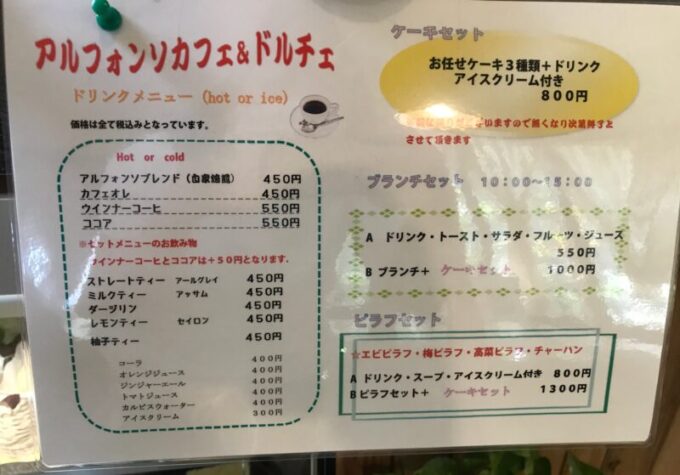 アルフォンソカフェ&ドルチェ
ドリンクメニュー (hot or ice)
価格は全て税込みとなっています。
Hot or cold
アルフォンソブレンド (自家焙煎) 450円
カフェオレ 450円
ウインナーコーヒ 550円
ココア 550円
※セットメニューのお飲み物
ウインナーコーヒとココアは+50円となります.
ストレートティー アールグレイ 450円
ミルクティー アッサム 450円
ダージリン 450円
レモンティー セイロン 450円
柚子ティー 450円
コーラ 400円
オレンジジュース 400円
ジンジャーエール 400円
トマトジュース 400円
カルピスウォーター 400円
アイスクリーム 300円
ケーキセット
お任せケーキ3種類+ドリンク
アイスクリーム付き
800円
ざいますので無くなり次第終了と
させて頂きます
ブランチセット 10:00~15:00
A ドリンク・トースト・サラダ・フルーツ・ジュース
550円
B ブランチ+ ケーキセット 1000円
ピラフセット
☆エビピラフ・梅ピラフ・高菜ピラフ・チャーハン
A ドリンク・スープ・アイスクリーム付き 800円
B ピラフセット+ ケーキセット 1300円